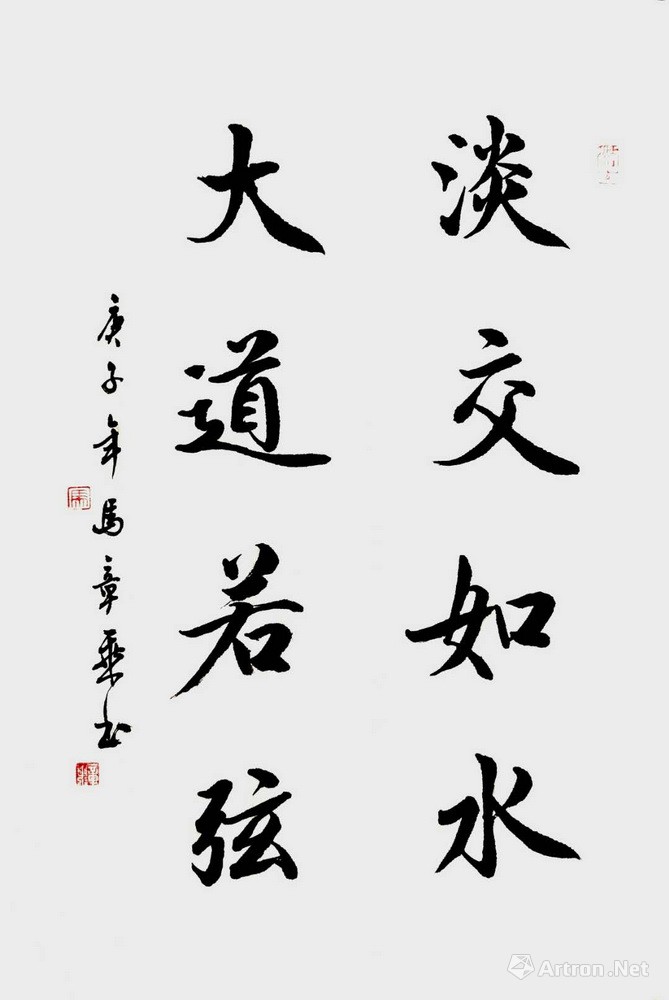 淡交如水
大道若弦
庚子年馬章乘书
Artron.Net